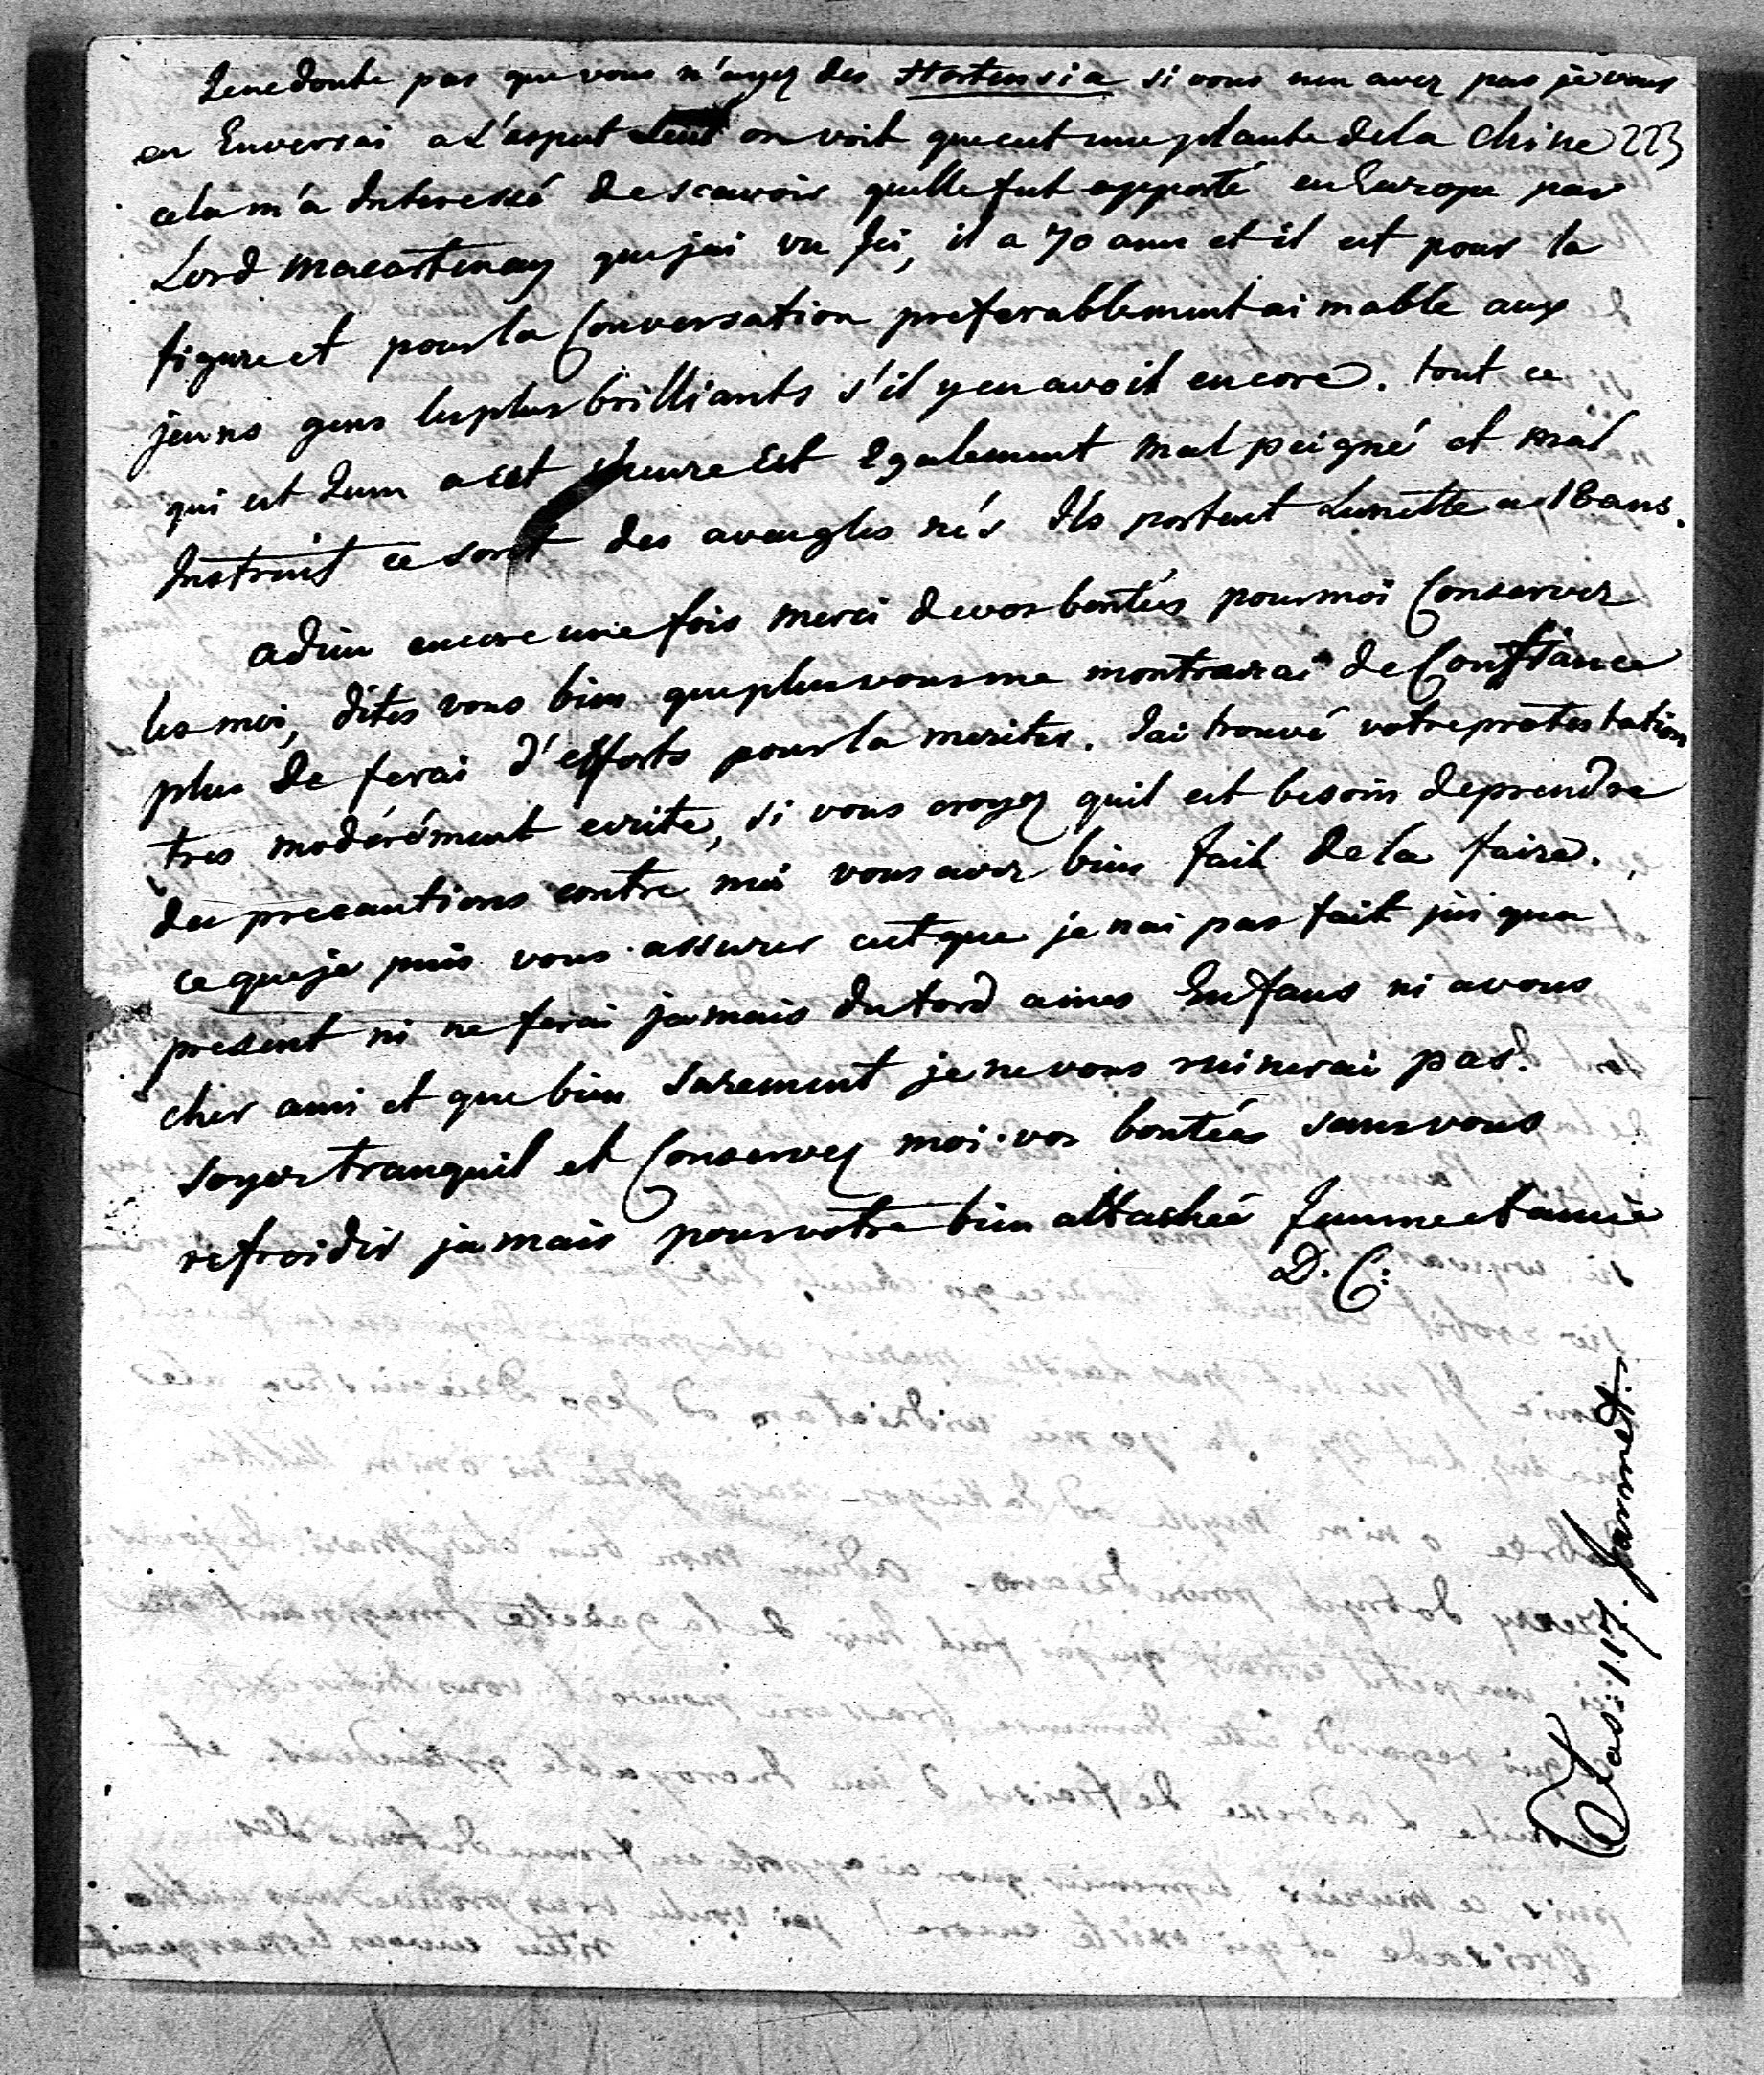 Je ne doute pas que vous n'ayez des Hortensia si vous nen avez pas je vous
en Enverrai a L'aspect on voit que cest une plante de la Chine 223
cela m'a Interessé de scavoir quelle fut apporté en Europe par
Lord Macartenay que jai vu Ici, il a 70 ans et il est pour la
figure et pour la Conversation preferablement aimable aux
jeuns gens les plus brilliants s'il y en avoit encore. tout ce
qui est Jeun a cet heure Est Egalement mal peigné et mal
Instruit ce sont des aveugles nés Ils portent Lunette a 18 ans.
adieu encore une fois merci de vos bontées pour moi Conservez
les moi, dites vous bien que plus vous me montrerai de Confiance
plus Je ferai d'efforts pour la meriter. Jai trouvé votre protestation
tres modérément ecrite, si vous croyez quil est besoin de prendre
des precautions contre moi vous avez bien fait de la faire.
ce que je puis vous assurer cest que je nai pas fait jusqua
present ni ne ferai jamais du tord a mes Enfans ni a vous
cher ami et que bien Surement je ne vous ruinerai pas.
Soyez tranquil et Conservez moi vos bontées sans vous
refroidir jamais pour votre bien attachée femme et amie
D. C:
117.